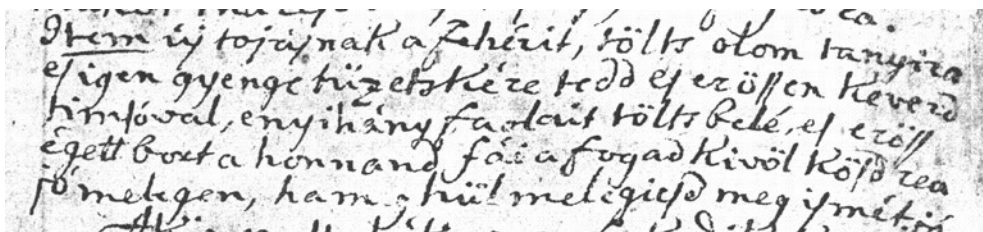 Item uÿ tojásnak a fehérit, tölts olom tanyira
es igen gyenge tüzetskére tedd es erössen keverd
timsóval, enyihány fa olait tölts belé, es eröss
égett bort a honnand fái a fogad kivöl kösd rea
jó melegen, ha m hül melegiesd meg ismét